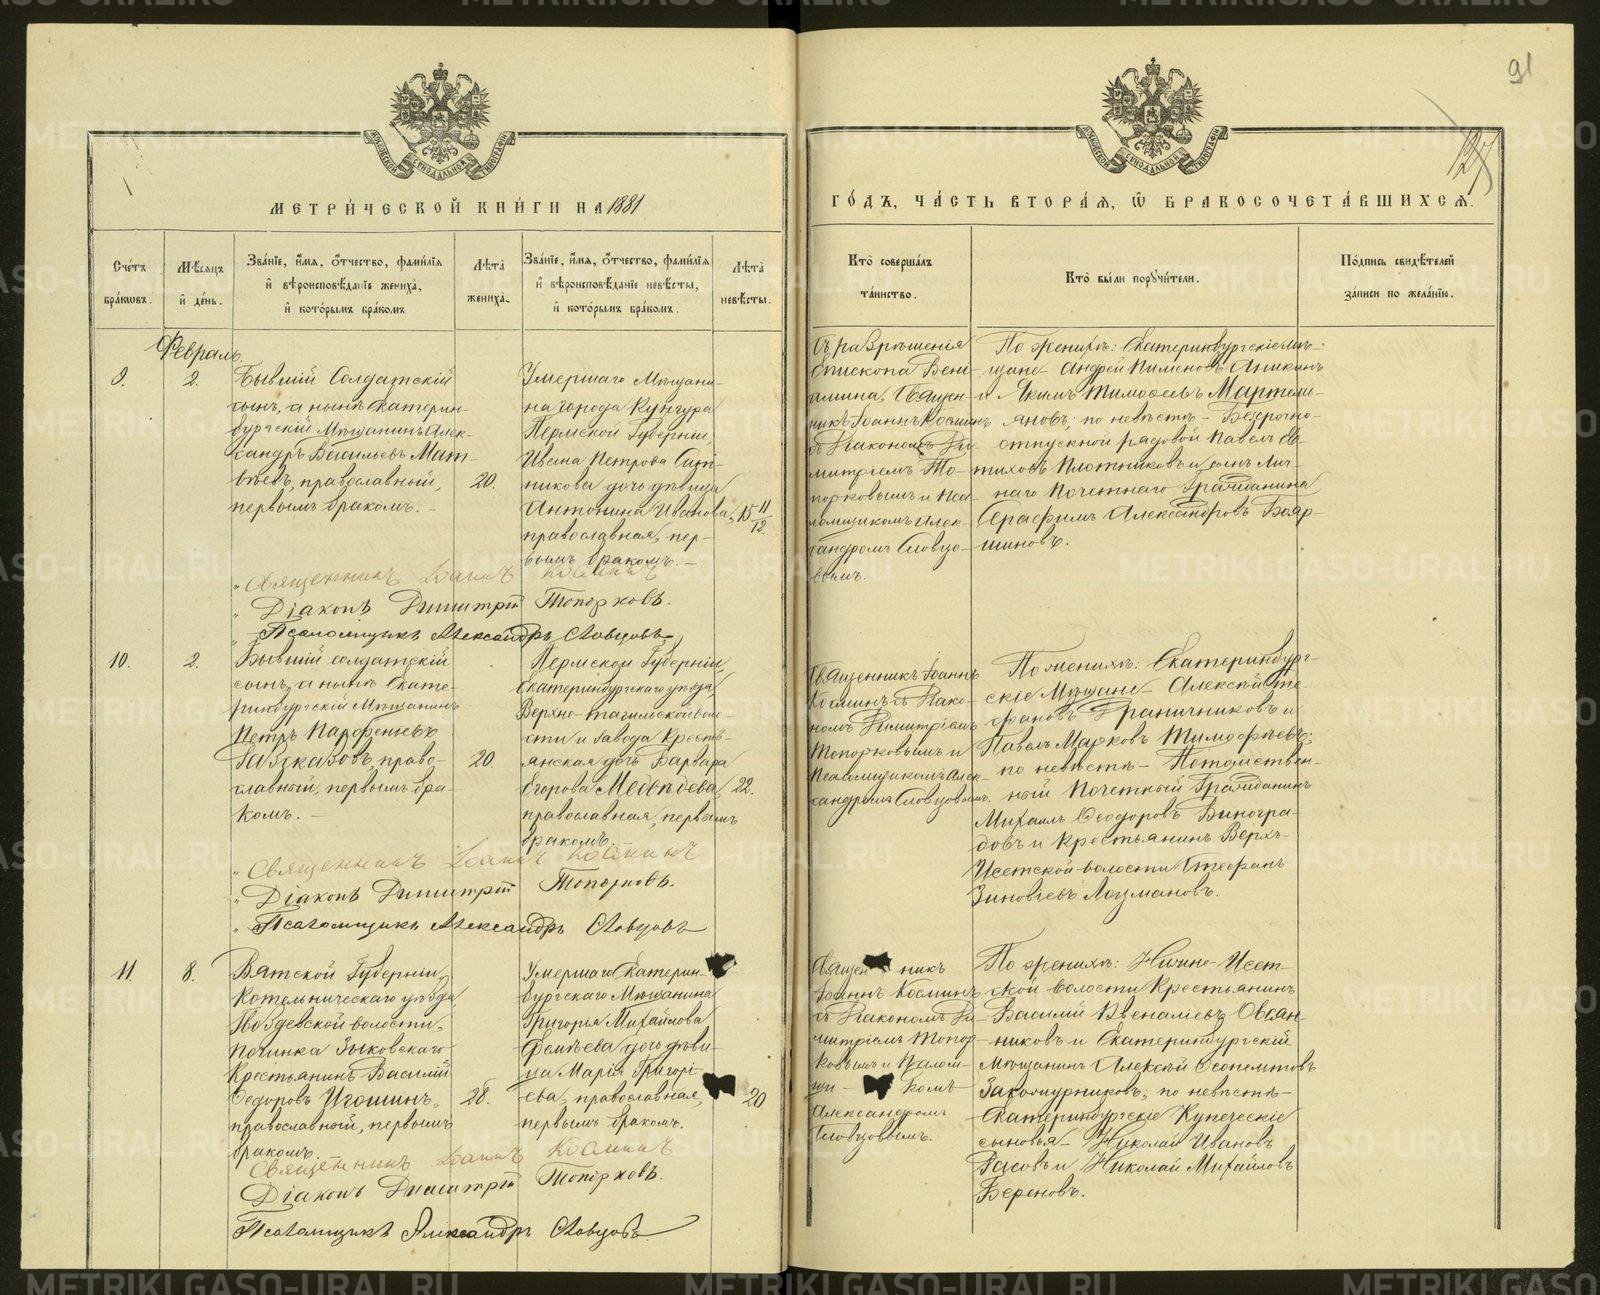 91
127
МЕТРИ́ЧЕСКОЙ КНИ́ГИ НА 1881
ГО́ДЪ, ЧА́СТЬ ВТОРА́Я, Ѿ БРАКОСОЧЕТА́ВШИХСЯ.
Сче́тъ бра́ковъ.
Мѣ́сяцъ и́ де́нь.
Зва́нїе, и́мя, ѻ́тчество, фами́лїя и́ вѣроисповѣ́данїе жениха̀, и́ кото́рымъ бра́комъ
Лѣ̀та̀ жениха̀.
Зва́нїе, и́мя, ѻ́тчество, фами́лїя и́ вѣроисповѣ́данїе невѣ́сты, и́ кото́рымъ бра́комъ.
Лѣ̀та̀ невѣ́сты.
Кто̀ соверша́лъ та́инство.
Кто̀ бы́ли пору́чители.
По́дпись свидѣ́телей за́писи по жела́нїю.
Февраль.
9.
2.
Бывшій Солдатскій
сынъ, а нынѣ Екатерин-
бургскій Мѣщанинъ Алек-
сандръ Васильевъ Мат-
вѣевъ, православный,
первымъ бракомъ. -
20.
Умершаго Мѣщани-
на города Кунгура
Пермской Губерніи,
Ивана Петрова Сит-
никова дочь дѣвица
Антонина Иванова,
православная, пер-
вымъ бракомъ. -
15 11/12.
Съ разрѣшенія
Епископа Вени-
амина, Священ-
никъ Іоаннъ Косминъ
съ Діакономъ Ди-
митріемъ То-
порковымъ и Пса-
ломщикомъ Алек-
сандромъ Словцо-
вымъ.
По женихѣ: Екатеринбургскіе мѣ-
щане - Андрей Пименовъ Аникинъ
и Якимъ Тимофеевъ Мартемь-
яновъ; по невѣстѣ - Безсрочно-
отпускной рядовой Павелъ Ев-
тиховъ Плотниковъ и сынъ Лич-
наго Почетнаго Гражданина
Серафимъ Александровъ Бояр-
шиновъ.
" Священникъ Іоаннъ Косминъ
" Діаконъ Димитрій Топорковъ.
" Псаломщикъ Александръ Словцовъ
10.
2.
Бывшій солдатскій
сынъ, а нынѣ Екате-
ринбургскій Мѣщанинъ
Петръ Парфеньевъ
Газказовъ, право-
славный, первымъ бра-
комъ. -
20.
Пермской Губерніи,
Екатеринбургскаго уѣзда,
Верхне-тагильской воло-
сти и завода Кресть-
янская дочь Варвара
Егорова Медвѣдева,
православная, первымъ
бракомъ.
22.
Священникъ Іоаннъ
Косминъ съ Діако-
номъ Димитріемъ
Топорковымъ и
Псаломщикомъ Алек-
сандромъ Словцовымъ.
По женихѣ: Екатеринбург-
скіе Мѣщане - Алексѣй Сте-
фановъ Граничниковъ и
Павелъ Марковъ Тимофѣевъ;
по невѣстѣ - Потомствен-
ный Почетный Гражданинъ
Михаилъ Ѳеодоровъ Виногра-
довъ и крестьянинъ Верхъ-
Исетской волости Стефанъ
Зиновіевъ Лоумановъ.
" Священникъ Іоаннъ Косминъ
" Діаконъ Димитрій Топорковъ.
" Псаломщикъ Александръ Словцовъ
11.
8.
Вятской Губерніи,
Котельническаго уѣзда
Гвоздевской волости,
починка Зыковскаго
Крестьянинъ Василій
Ѳедоровъ Игошинъ,
православный, первымъ
бракомъ.
28.
Умершаго Екатерин-
бургскаго Мѣщанина
Григорья Михайлова
Фомѣева дочь дѣви-
ца Марія Григорі-
ева, православная,
первымъ бракомъ.
20
Священникъ
Іоаннъ Косминъ
съ Діакономъ Ди-
митріемъ Топор-
ковымъ и Псалом-
щи- комъ
Александромъ
Словцовымъ.
По женихѣ: Нижне-Исет-
ской волости Крестьянинъ
Василій Евеналіевъ Овсян-
никовъ и Екатеринбургскій
Мѣщанинъ Алексѣй Ѳеопемптовъ
Закожурниковъ; по невѣстѣ -
Екатеринбургскіе Купеческіе
сыновья - Николай Ивановъ
Расовъ и Николай Михайловъ
Береновъ.
Священникъ Іоаннъ Косминъ
Діаконъ Димитрій Топорковъ.
Псаломщикъ Александръ Словцовъ
METRIKI.GASO-URAL.RU